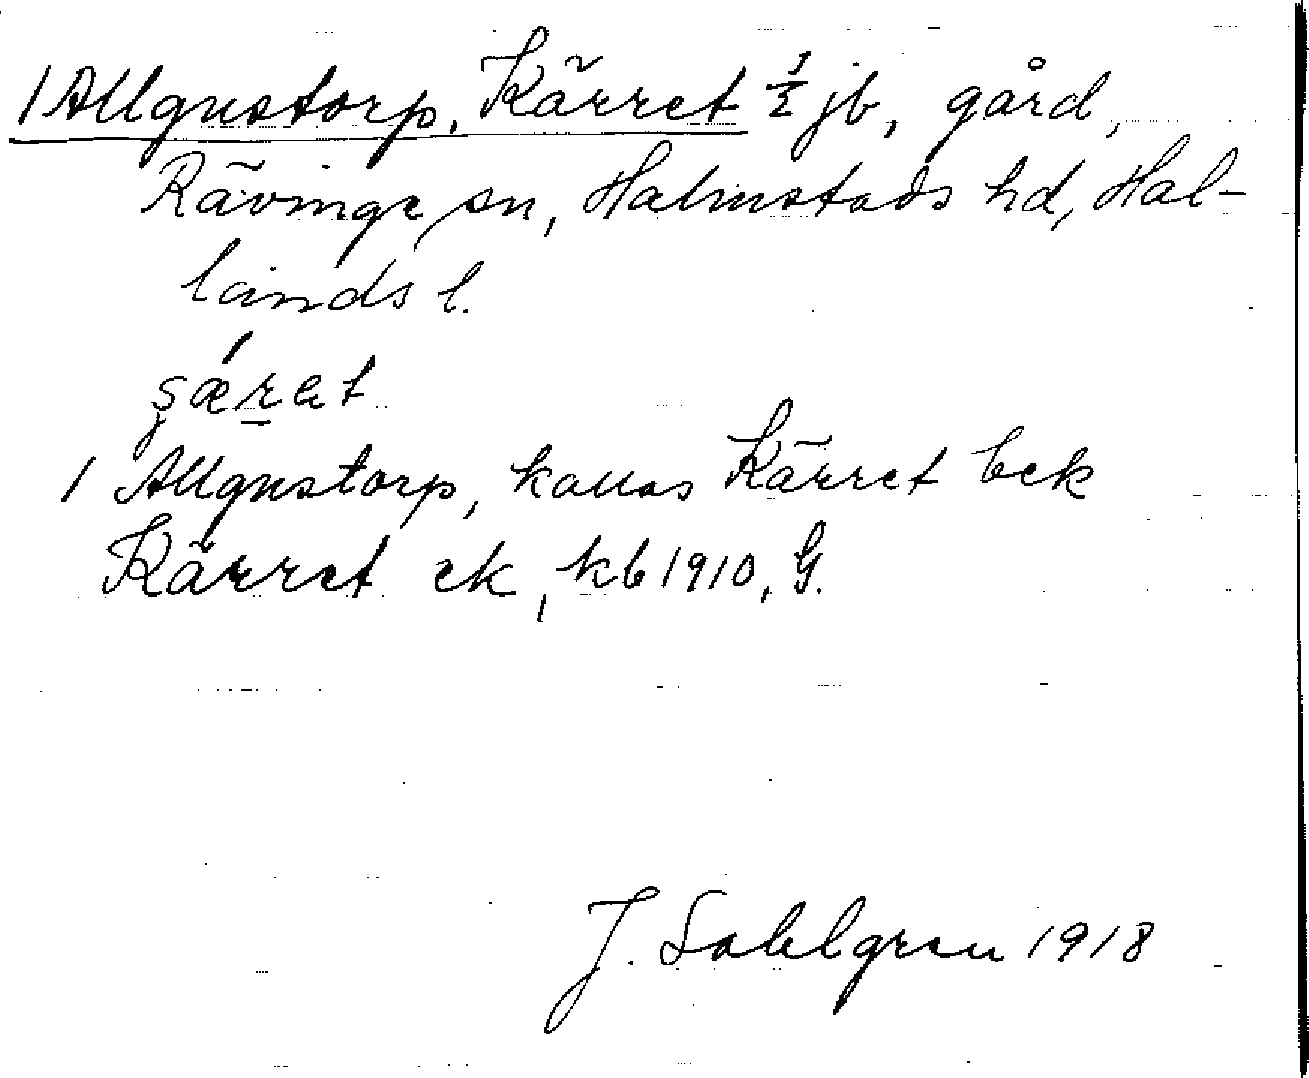 1 Allgustorp, Kärret ½ jb, gård,
Rävinge sn, Halmstads hd, Hal-
lands l.
1 Allgustorp, kallas Kärret bek
Kärret ek, kb 1910, G.
J. Sahlgren 1918